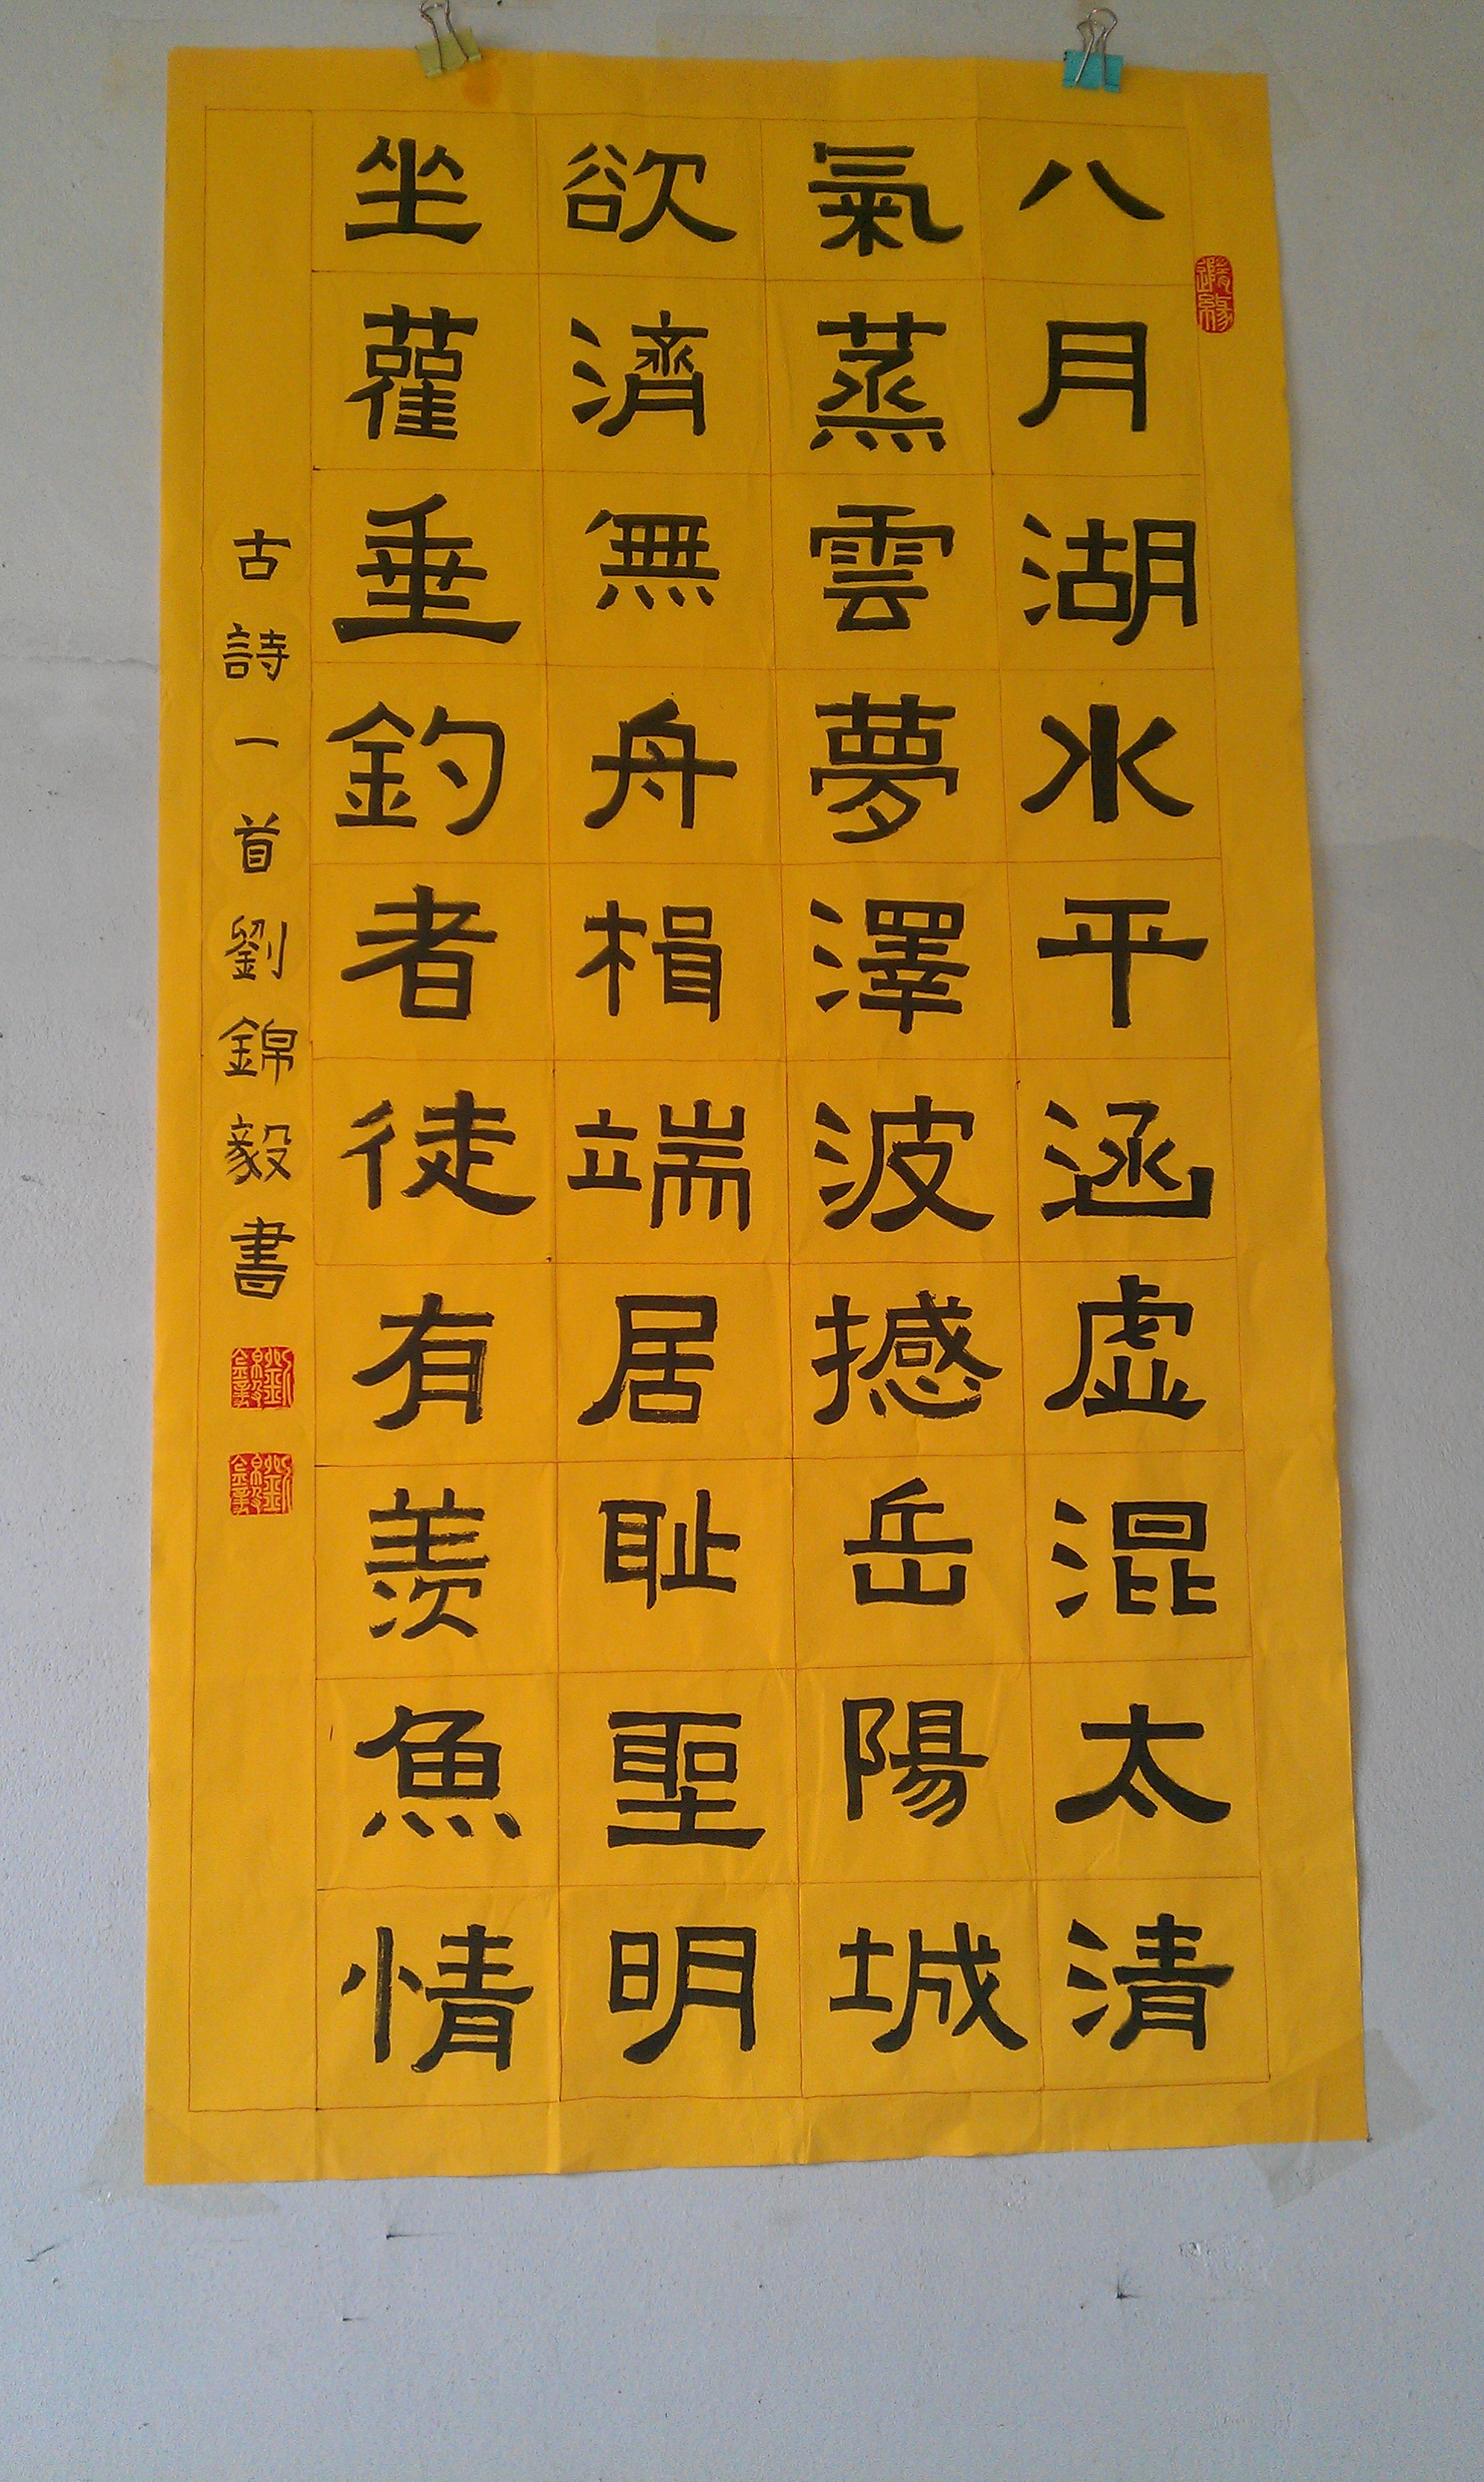 八月湖水平涵虛混太清
氣蒸雲夢澤波撼岳陽城
欲濟無舟楫端居恥聖明
坐雚垂釣者徒有羨魚情
古詩一首劉錦毅書